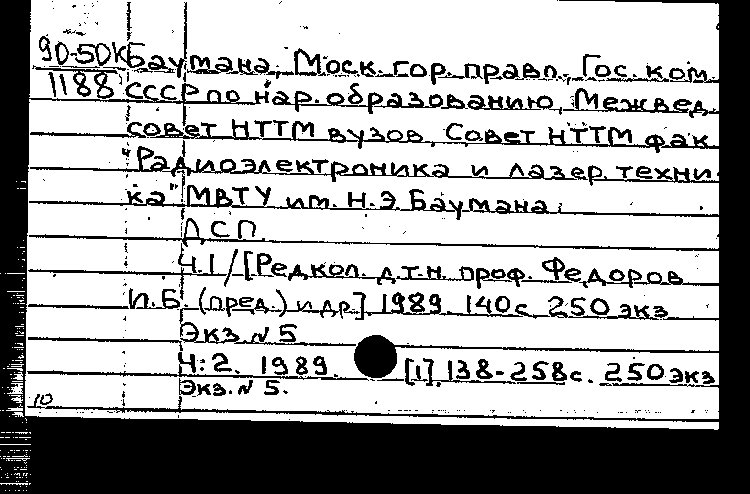 90-50К Баумана, Моск. гор. правл., Гос. ком.
1188 СССР по нар. образованию, Межвед.
совет НТТМ вузов, Совет НТТМ фак.
"Радиоэлектроника и лазер. техни-
ка" МВТУ им. Н.Э. Баумана.
ДСП.
Ч.1/[Редкол. д.т.н. проф. Федоров
И.Б. (пред.) и др]. 1989. 140с. 250 экз
Экз. N 5
Ч:2. 1989. [1], 138-258с. 250 экз
Экз. N 5.
10